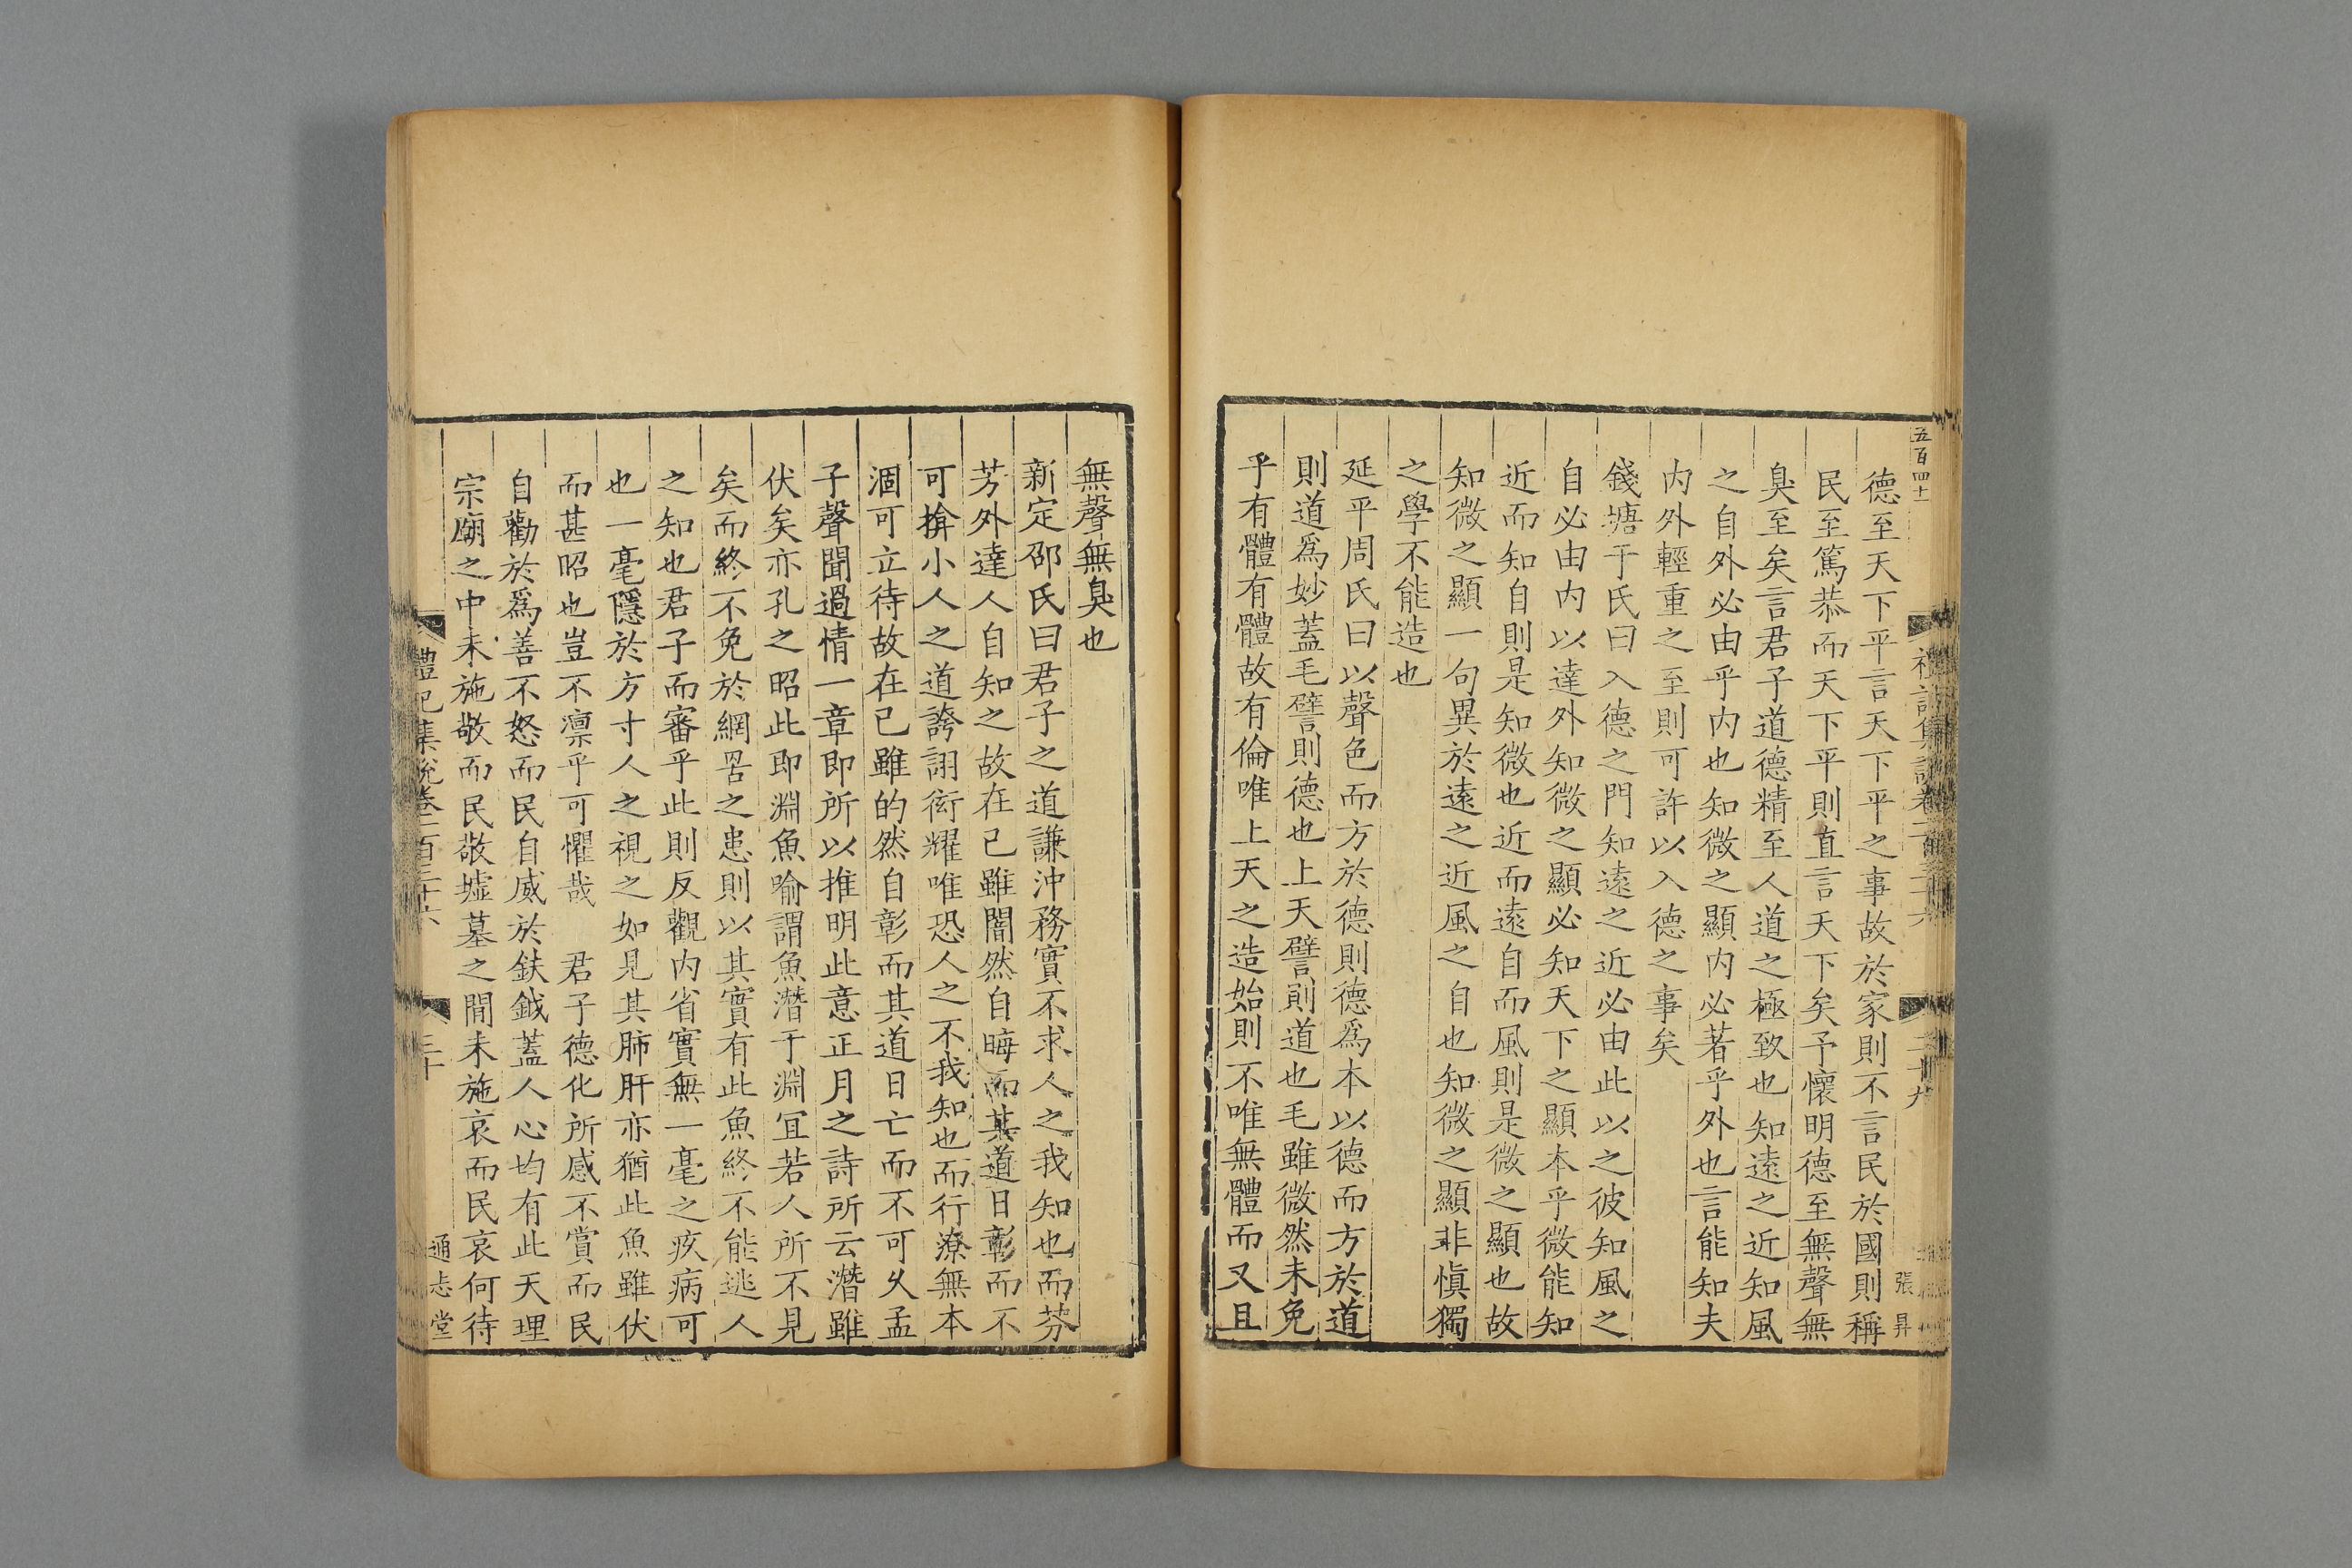 五百四十
德至天下平言天下平之事故於家則不言民於國則稱
民至篤恭而天下平則直言天下矣予懷明德至無聲無
臭至矣言君子道德精至人道之極致也知遠之近知風
之自外必由乎内也知微之顯内必著乎外也言能知夫
内外輕重之至則可許以入德之事矣
錢塘于氏曰入德之門知遠之近必由此以之彼知風之
自必由内以達外知微之顯必知天下之顯本乎微能知
近而知自則是知微也近而遠自而風則是微之顯也故
知微之顯一句異於遠之近風之自也知微之顯非愼獨
之學不能造也
延平周氏曰以聲色而方於德則德爲本以德而方於道
則道爲妙蓋毛譬則德也上天譬則道也毛雖微然未免
乎有體有體故有倫唯上天之造始則不唯無體而又且
張昇
無聲無臭也
新定邵氏曰君子之道謙沖務實不求人之我知也而芬
芳外達人自知之故在已雖闇然自晦而其道日彰而不
可揜小人之道誇詡衒耀唯恐人之不我知也而行潦無本
涸可立待故在已雖的然自彰而其道日亡而不可乆孟
子聲聞過情一章即所以推明此意正月之詩所云潛雖
伏矣亦孔之昭此即淵魚喻謂魚潛于淵冝若人所不見
矣而終不免於網罟之患則以其實有此魚終不能逃人
之知也君子而審乎此則反觀内省實無一毫之疚病可
也一毫隱於方寸人之視之如見其肺肝亦猶此魚雖伏
而甚昭也豈不凛乎可懼哉　君子德化所感不賞而民
自勸於爲善不怒而民自威於鈇鉞蓋人心均有此天理
宗廟之中未施敬而民敬墟墓之間未施哀而民哀何待
禮記集說卷一百三十六
三十
通志堂